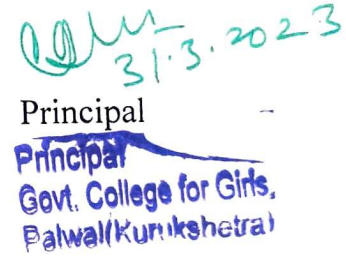 31.3.2023
Principal
Principal
Govt. College for Girls,
Palwal(Kurukshetra)